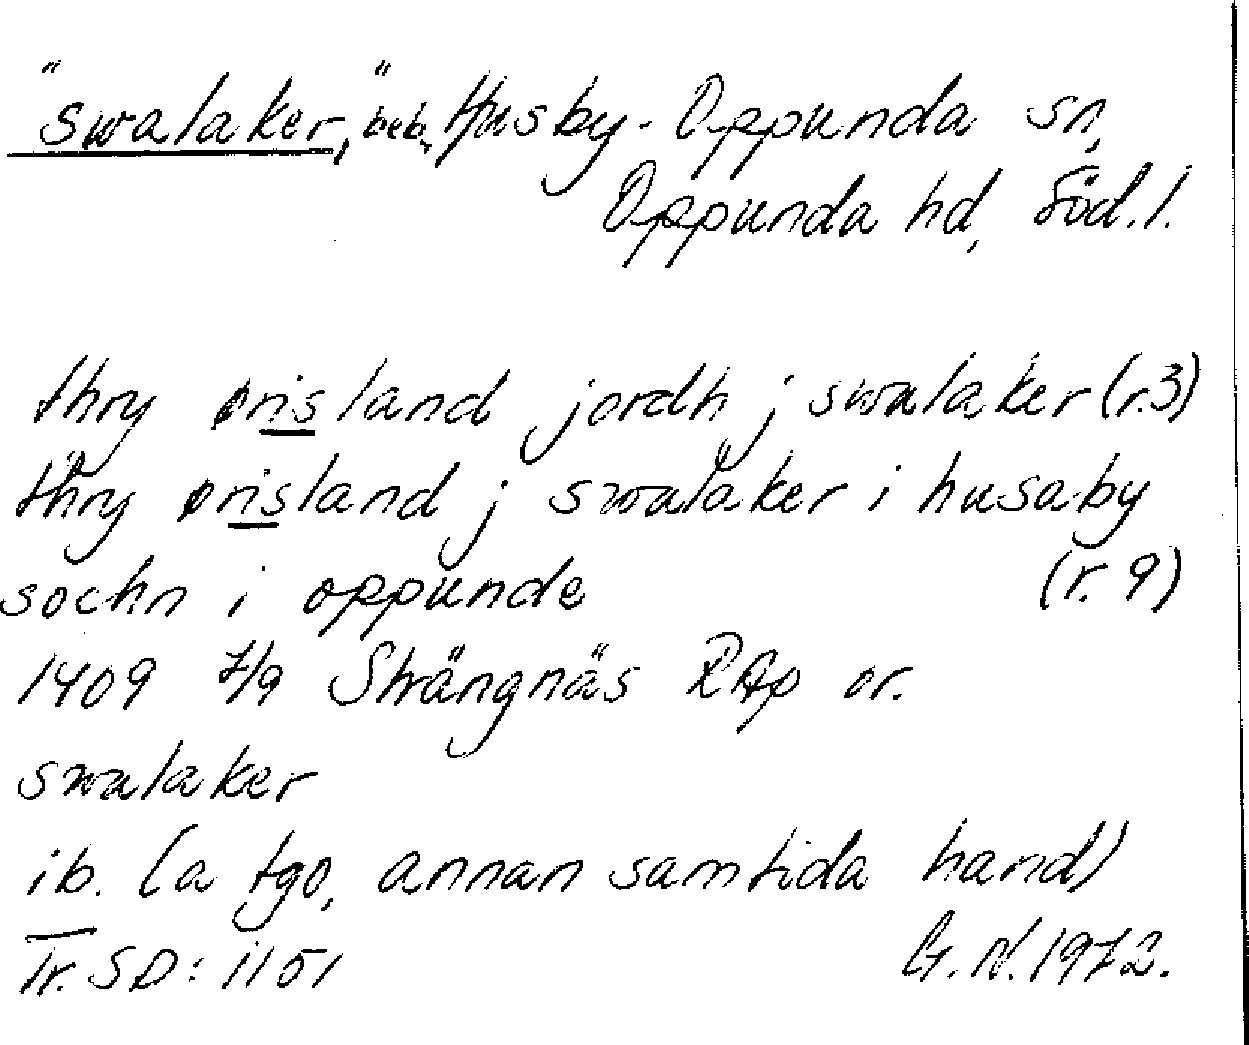 "swalaker," beb. Husby-Oppunda sn,
Oppunda hd, Söd.l.
thry ørisland jordh j swalaker (r.3)
thry ørisland j swalaker i husaby
sochn i oppunde (r. 9)
1409 7/9 Strängnäs RAp or.
swalaker
ib. (a tgo, annan samtida hand)
Tr. SD: 1151 G.N. 1972.